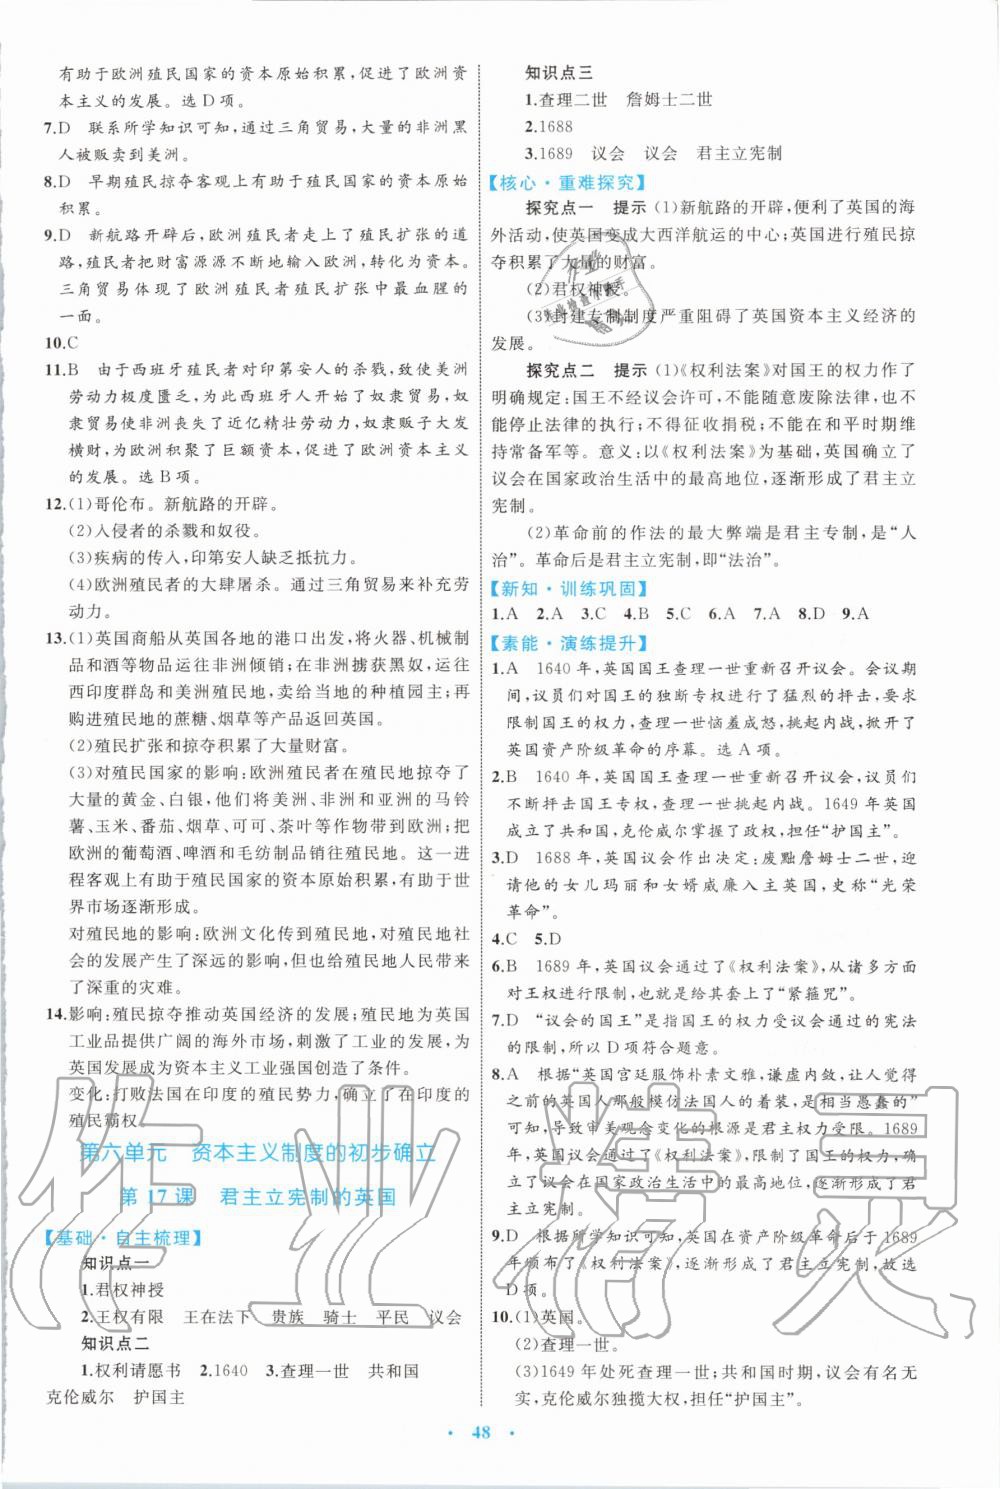 有助于欧洲殖民国家的资本原始积累,促进了欧洲资
本主义的发展。选D项。
7.D 联系所学知识可知,通过三角贸易,大量的非洲黑
人被贩卖到美洲。
8.D 早期殖民掠夺客观上有助于殖民国家的资本原始
积累。
9.D 新航路开辟后,欧洲殖民者走上了殖民扩张的道
路,殖民者把财富源源不断地输入欧洲,转化为资本。
三角贸易体现了欧洲殖民者殖民扩张中最血腥的
一面。
10.C
11.B 由于西班牙殖民者对印第安人的杀戮,致使美洲
劳动力极度匮乏,为此西班牙人开始了奴隶贸易,奴
隶贸易使非洲丧失了近亿精壮劳动力,奴隶贩子大发
横财,为欧洲积聚了巨额资本,促进了欧洲资本主义
的发展。选B项。
12.(1)哥伦布。新航路的开辟。
(2)入侵者的杀戮和奴役。
(3)疾病的传入,印第安人缺乏抵抗力。
(4)欧洲殖民者的大肆屠杀。通过三角贸易来补充劳
动力。
13.(1)英国商船从英国各地的港口出发,将火器、机械制
品和酒等物品运往非洲倾销;在非洲掳获黑奴,运往
西印度群岛和美洲殖民地,卖给当地的种植园主;再
购进殖民地的蔗糖、烟草等产品返回英国。
(2)殖民扩张和掠夺积累了大量财富。
(3)对殖民国家的影响:欧洲殖民者在殖民地掠夺了
大量的黄金、白银,他们将美洲、非洲和亚洲的马铃
薯、玉米、番茄、烟草、可可、茶叶等作物带到欧洲;把
欧洲的葡萄酒、啤酒和毛纺制品销往殖民地。这一进
程客观上有助于殖民国家的资本原始积累,有助于世
界市场逐渐形成。
对殖民地的影响:欧洲文化传到殖民地,对殖民地社
会的发展产生了深远的影响,但也给殖民地人民带来
了深重的灾难。
14.影响:殖民掠夺推动英国经济的发展;殖民地为英国
工业品提供广阔的海外市场,刺激了工业的发展,为
英国发展成为资本主义工业强国创造了条件。
变化:打败法国在印度的殖民势力,确立了在印度的
殖民霸权。
第六单元 资本主义制度的初步确立
第17课 君主立宪制的英国
【基础·自主梳理】
知识点一
1.君权神授
2.王权有限 王在法下 贵族 骑士 平民 议会
知识点二
1.权利请愿书 2.1640 3.查理一世 共和国
克伦威尔 护国主
知识点三
1.查理二世 詹姆士二世
2.1688
3.1689 议会 议会 君主立宪制
【核心·重难探究】
探究点一 提示 (1)新航路的开辟,便利了英国的海
外活动,使英国变成大西洋航运的中心;英国进行殖民掠
夺积累了大量的财富。
(2)君权神授。
(3)封建专制制度严重阻碍了英国资本主义经济的
发展。
探究点二 提示 (1)《权利法案》对国王的权力作了
明确规定:国王不经议会许可,不能随意废除法律,也不
能停止法律的执行;不得征收捐税;不能在和平时期维
持常备军等。意义:以《权利法案》为基础,英国确立了
议会在国家政治生活中的最高地位,逐渐形成了君主立
宪制。
(2)革命前的作法的最大弊端是君主专制,是“人
治”。革命后是君主立宪制,即“法治”。
【新知·训练巩固】
1.A 2.A 3.C 4.B 5.C 6.A 7.A 8.D 9.A
【素能·演练提升】
1.A 1640年,英国国王查理一世重新召开议会。会议期
间,议员们对国王的独断专权进行了猛烈的抨击,要求
限制国王的权力,查理一世恼羞成怒,挑起内战,掀开了
英国资产阶级革命的序幕。选A项。
2.B 1640年,英国国王查理一世重新召开议会,议员们
不断抨击国王专权,查理一世挑起内战。1649年英国
成立了共和国,克伦威尔掌握了政权,担任“护国主”。
3.D 1688年,英国议会作出决定:废黜詹姆士二世,迎
请他的女儿玛丽和女婿威廉入主英国,史称“光荣
革命”。
4.C 5.D
6.B 1689年,英国议会通过了《权利法案》,从诸多方面
对王权进行限制,无疑是给其套上了“紧箍咒”。
7.D “议会的国王”是指国王的权力受议会通过的宪法
的限制,所以D项符合题意。
8.A 根据“英国宫廷服饰朴素文雅,谦虚内敛,让人觉得
之前的英国人那般模仿法国人的着装,是相当愚蠢的”
可知,导致审美观念变化的根源是君主权力受限。1689
年,英国议会通过《权利法案》,限制了国王的权力,确立
了议会在国家政治生活中的最高地位,逐渐形成了君
主立宪制。
9.D 根据所学知识可知,英国在资产阶级革命后于1689
年颁布了《权利法案》,逐渐形成了君主立宪制,故选
D项。
10.(1)英国。
(2)查理一世。
(3)1649年处死查理一世;共和国时期,议会有名无
实,克伦威尔独揽大权,担任“护国主”。
· 48 ·
作业精灵